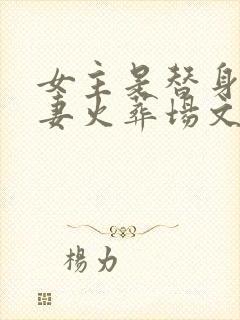 女主是替身
妻火葬场文
楊力